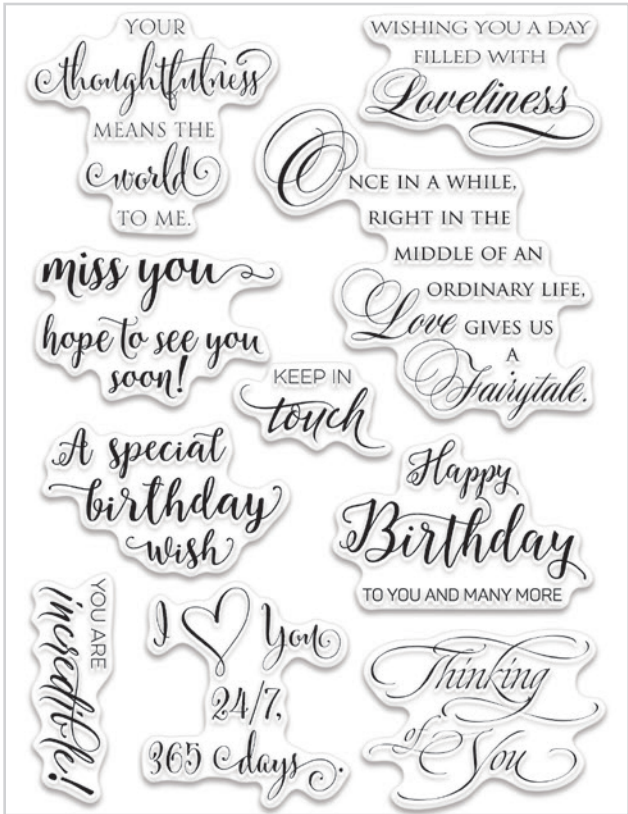 YOUR
thoughtfulness
MEANS THE
world
TO ME.
WISHING YOU A DAY
FILLED WITH
Loveliness
ONCE IN A WHILE,
RIGHT IN THE
MIDDLE OF AN
ORDINARY LIFE,
Love GIVES US
A
Fairytale.
miss you
hope to see you
soon!
KEEP IN
touch
A special
birthday
wish
Happy
Birthday
TO YOU AND MANY MORE
YOU ARE
incredible!
I ♡ You
24/7,
365 days.
Thinking
of You